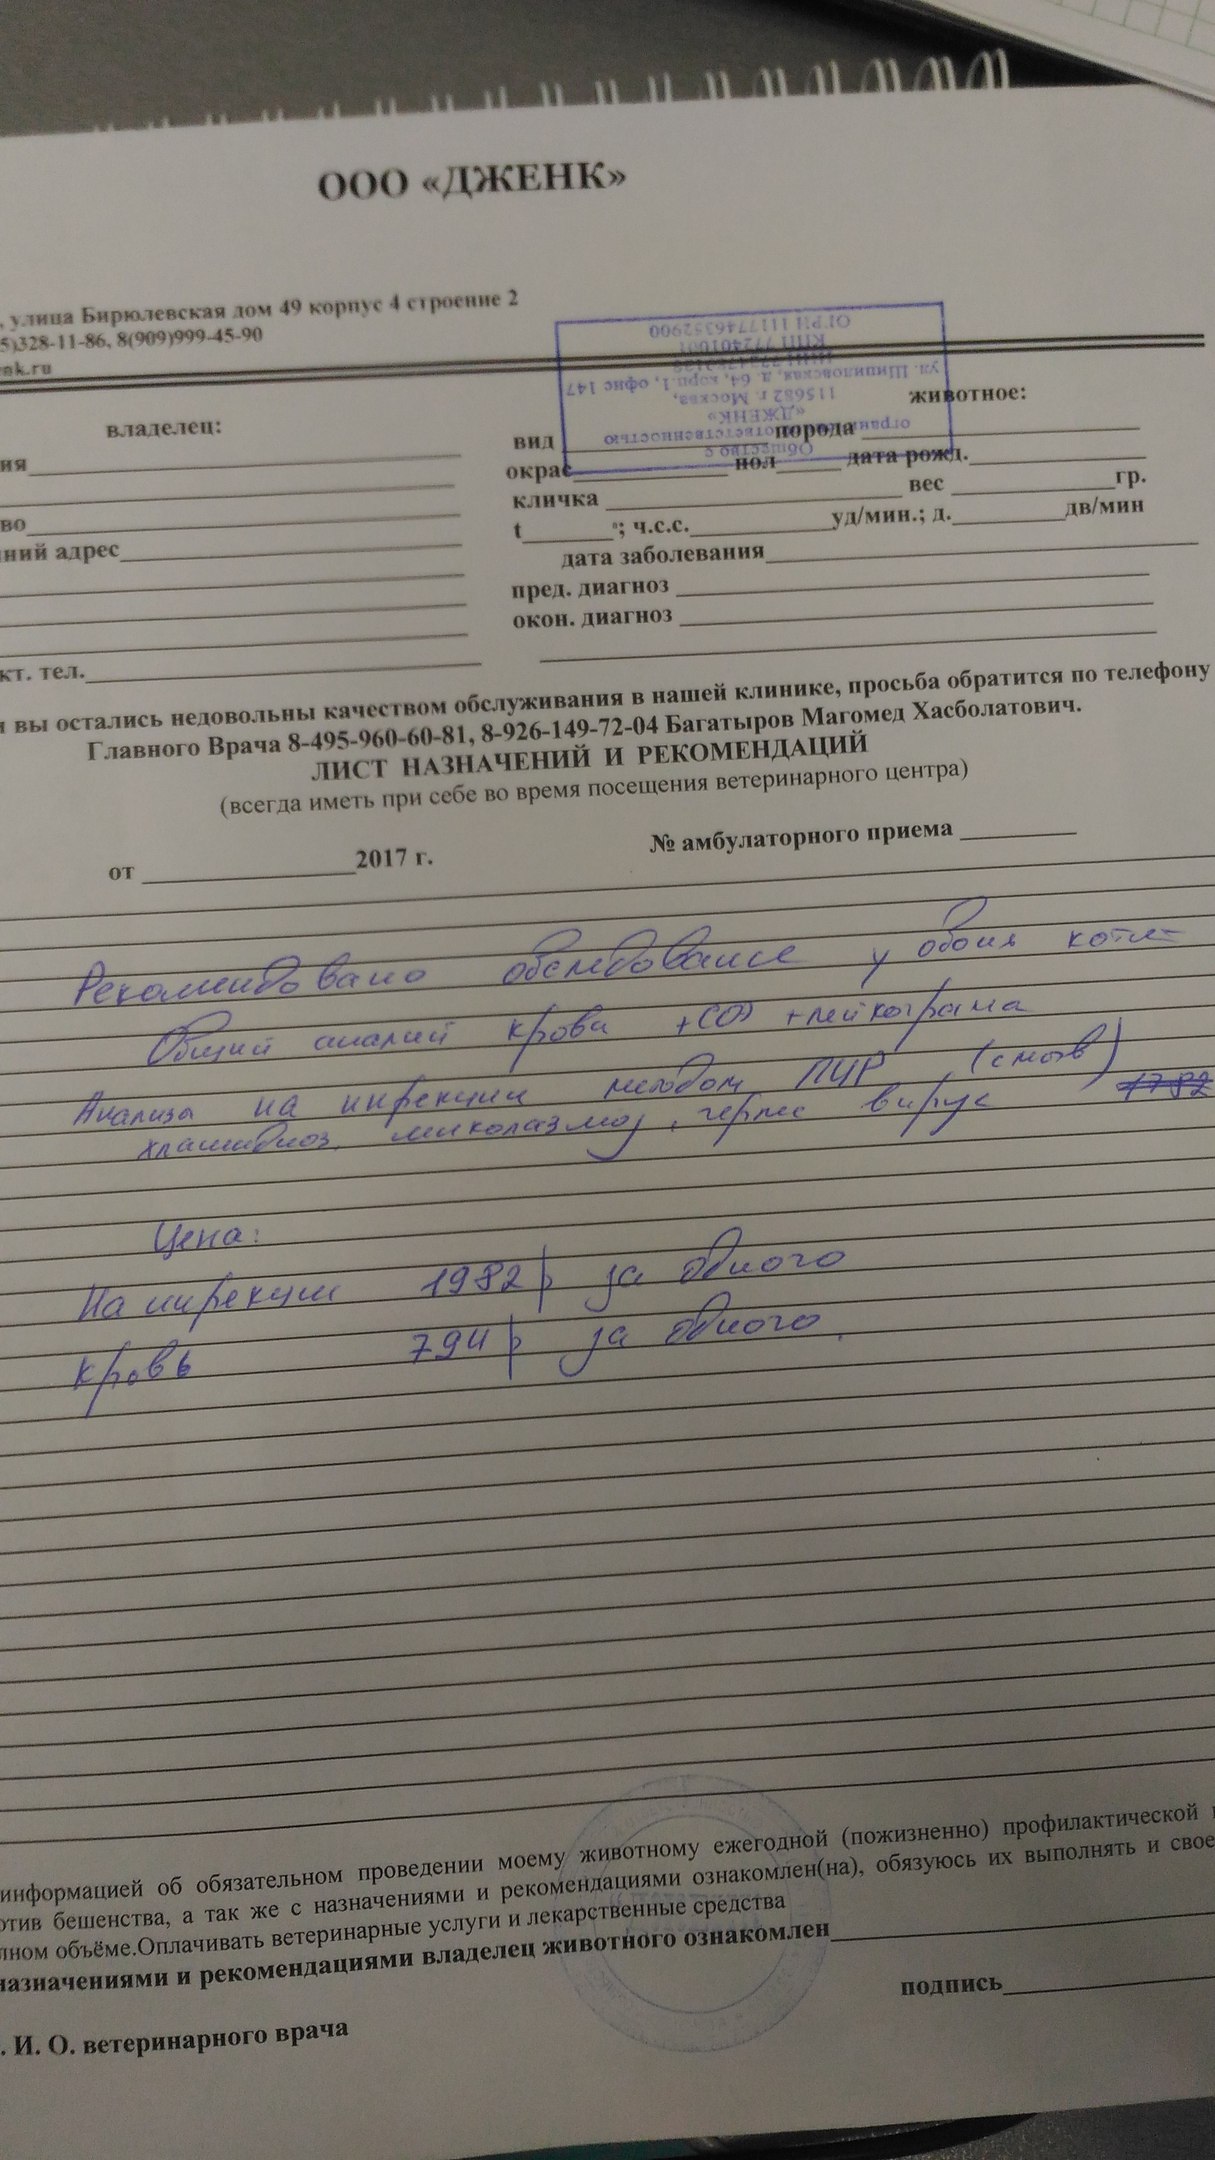 ООО «ДЖЕНК»
, улица Бирюлевская дом 49 корпус 4 строение 2
5)328-11-86, 8(909)999-45-90
nk.ru
Общество с
ограниченной ответственностью
«ДЖЕНК»
115682 г. Москва,
ул. Шипиловская, д. 64, корп.1, офис 147
КПП 772401001
ОГРН 1117746352900
владелец:
животное:
вид порода
ия
окрас пол дата рожд.
кличка вес гр.
во
t °; ч.с.с. уд/мин.; д. дв/мин
ний адрес
дата заболевания
пред. диагноз
окон. диагноз
кт. тел.
и вы остались недовольны качеством обслуживания в нашей клинике, просьба обратится по телефону
Главного Врача 8-495-960-60-81, 8-926-149-72-04 Багатыров Магомед Хасболатович.
ЛИСТ НАЗНАЧЕНИЙ И РЕКОМЕНДАЦИЙ
(всегда иметь при себе во время посещения ветеринарного центра)
№ амбулаторного приема
от 2017 г.
Рекомендовано обследование у обоих котят
Общий анализ крови +СОЭ +лейкограма
Анализы на инфекции методом ПЦР (смыв) 1782
хламидиоз, микоплазмоз, герпес вирус
Цена:
На инфекции 1982р за одного
Кровь 794р за одного.
информацией об обязательном проведении моему животному ежегодной (пожизненно) профилактической
отив бешенства, а так же с назначениями и рекомендациями ознакомлен(на), обязуюсь их выполнять и свое
лном объёме.Оплачивать ветеринарные услуги и лекарственные средства
назначениями и рекомендациями владелец животного ознакомлен
подпись
. И. О. ветеринарного врача